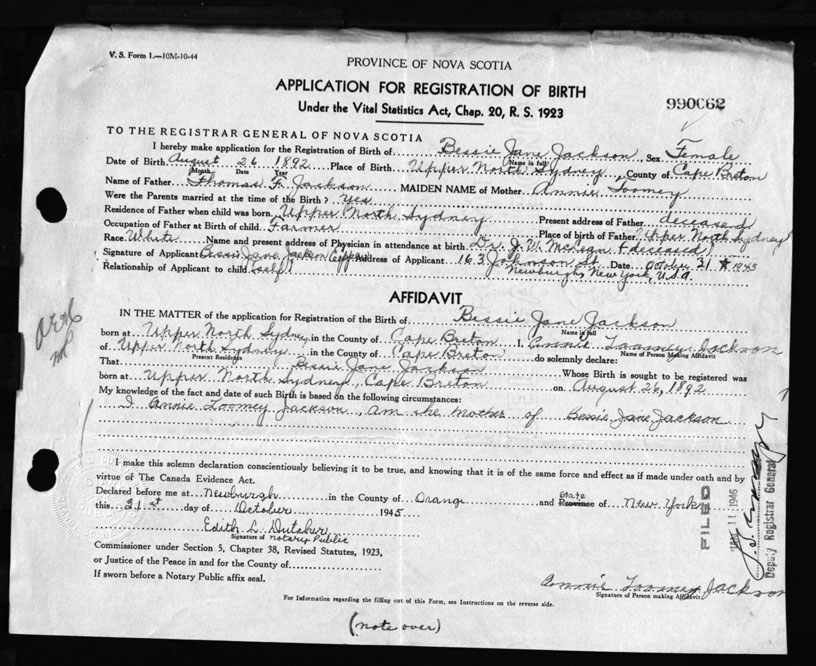 V. S. Form 1.—10M-10-44
PROVINCE OF NOVA SCOTIA
APPLICATION FOR REGISTRATION OF BIRTH
Under the Vital Statistics Act, Chap. 20, R. S. 1923
990062
TO THE REGISTRAR GENERAL OF NOVA SCOTIA
I hereby make application for the Registration of Birth of Bessie Jane Jackson, Sex Female
Name in full
Date of Birth August 26 1892 Place of Birth Upper North Sydney County of Cape Breton
Month Date Year
Name of Father Thomas F. Jackson MAIDEN NAME of Mother Annie Toomey
Were the Parents married at the time of the Birth? Yes
Residence of Father when child was born Upper North Sydney Present address of Father deceased
Occupation of Father at Birth of child Farmer Place of birth of Father Upper North Sydney
Race White Name and present address of Physician in attendance at birth Dr. J. W. McLean (deceased)
Signature of Applicant Bessie Jane Jackson Address of Applicant 163 Johnson St. Date October 31 1945
Newburgh, New York, U.S.A.
Relationship of Applicant to child (self)
AFFIDAVIT
IN THE MATTER of the application for Registration of the Birth of Bessie Jane Jackson
Name in full
born at Upper North Sydney in the County of Cape Breton I, Annie Toomey Jackson
Name of Person Making Affidavit
of Upper North Sydney in the County of Cape Breton do solemnly declare:
Present Residence
That Bessie Jane Jackson Whose Birth is sought to be registered was
born at Upper North Sydney, Cape Breton on August 26, 1892
My knowledge of the fact and date of such Birth is based on the following circumstances:
I Annie Toomey Jackson, am the mother of Bessie Jane Jackson
I make this solemn declaration conscientiously believing it to be true, and knowing that it is of the same force and effect as if made under oath and by
virtue of The Canada Evidence Act.
Declared before me at Newburgh in the County of Orange and State Province of New York
this 31st day of October 1945
Edith L. Dutcher
Signature of Notary Public
Commissioner under Section 5, Chapter 38, Revised Statutes, 1923,
or Justice of the Peace in and for the County of
If sworn before a Notary Public affix seal.
Annie Toomey Jackson
Signature of Person making Affidavit
For Information regarding the filling out of this Form, see Instructions on the reverse side.
(note over)
FILED
11 1946
Deputy Registrar General